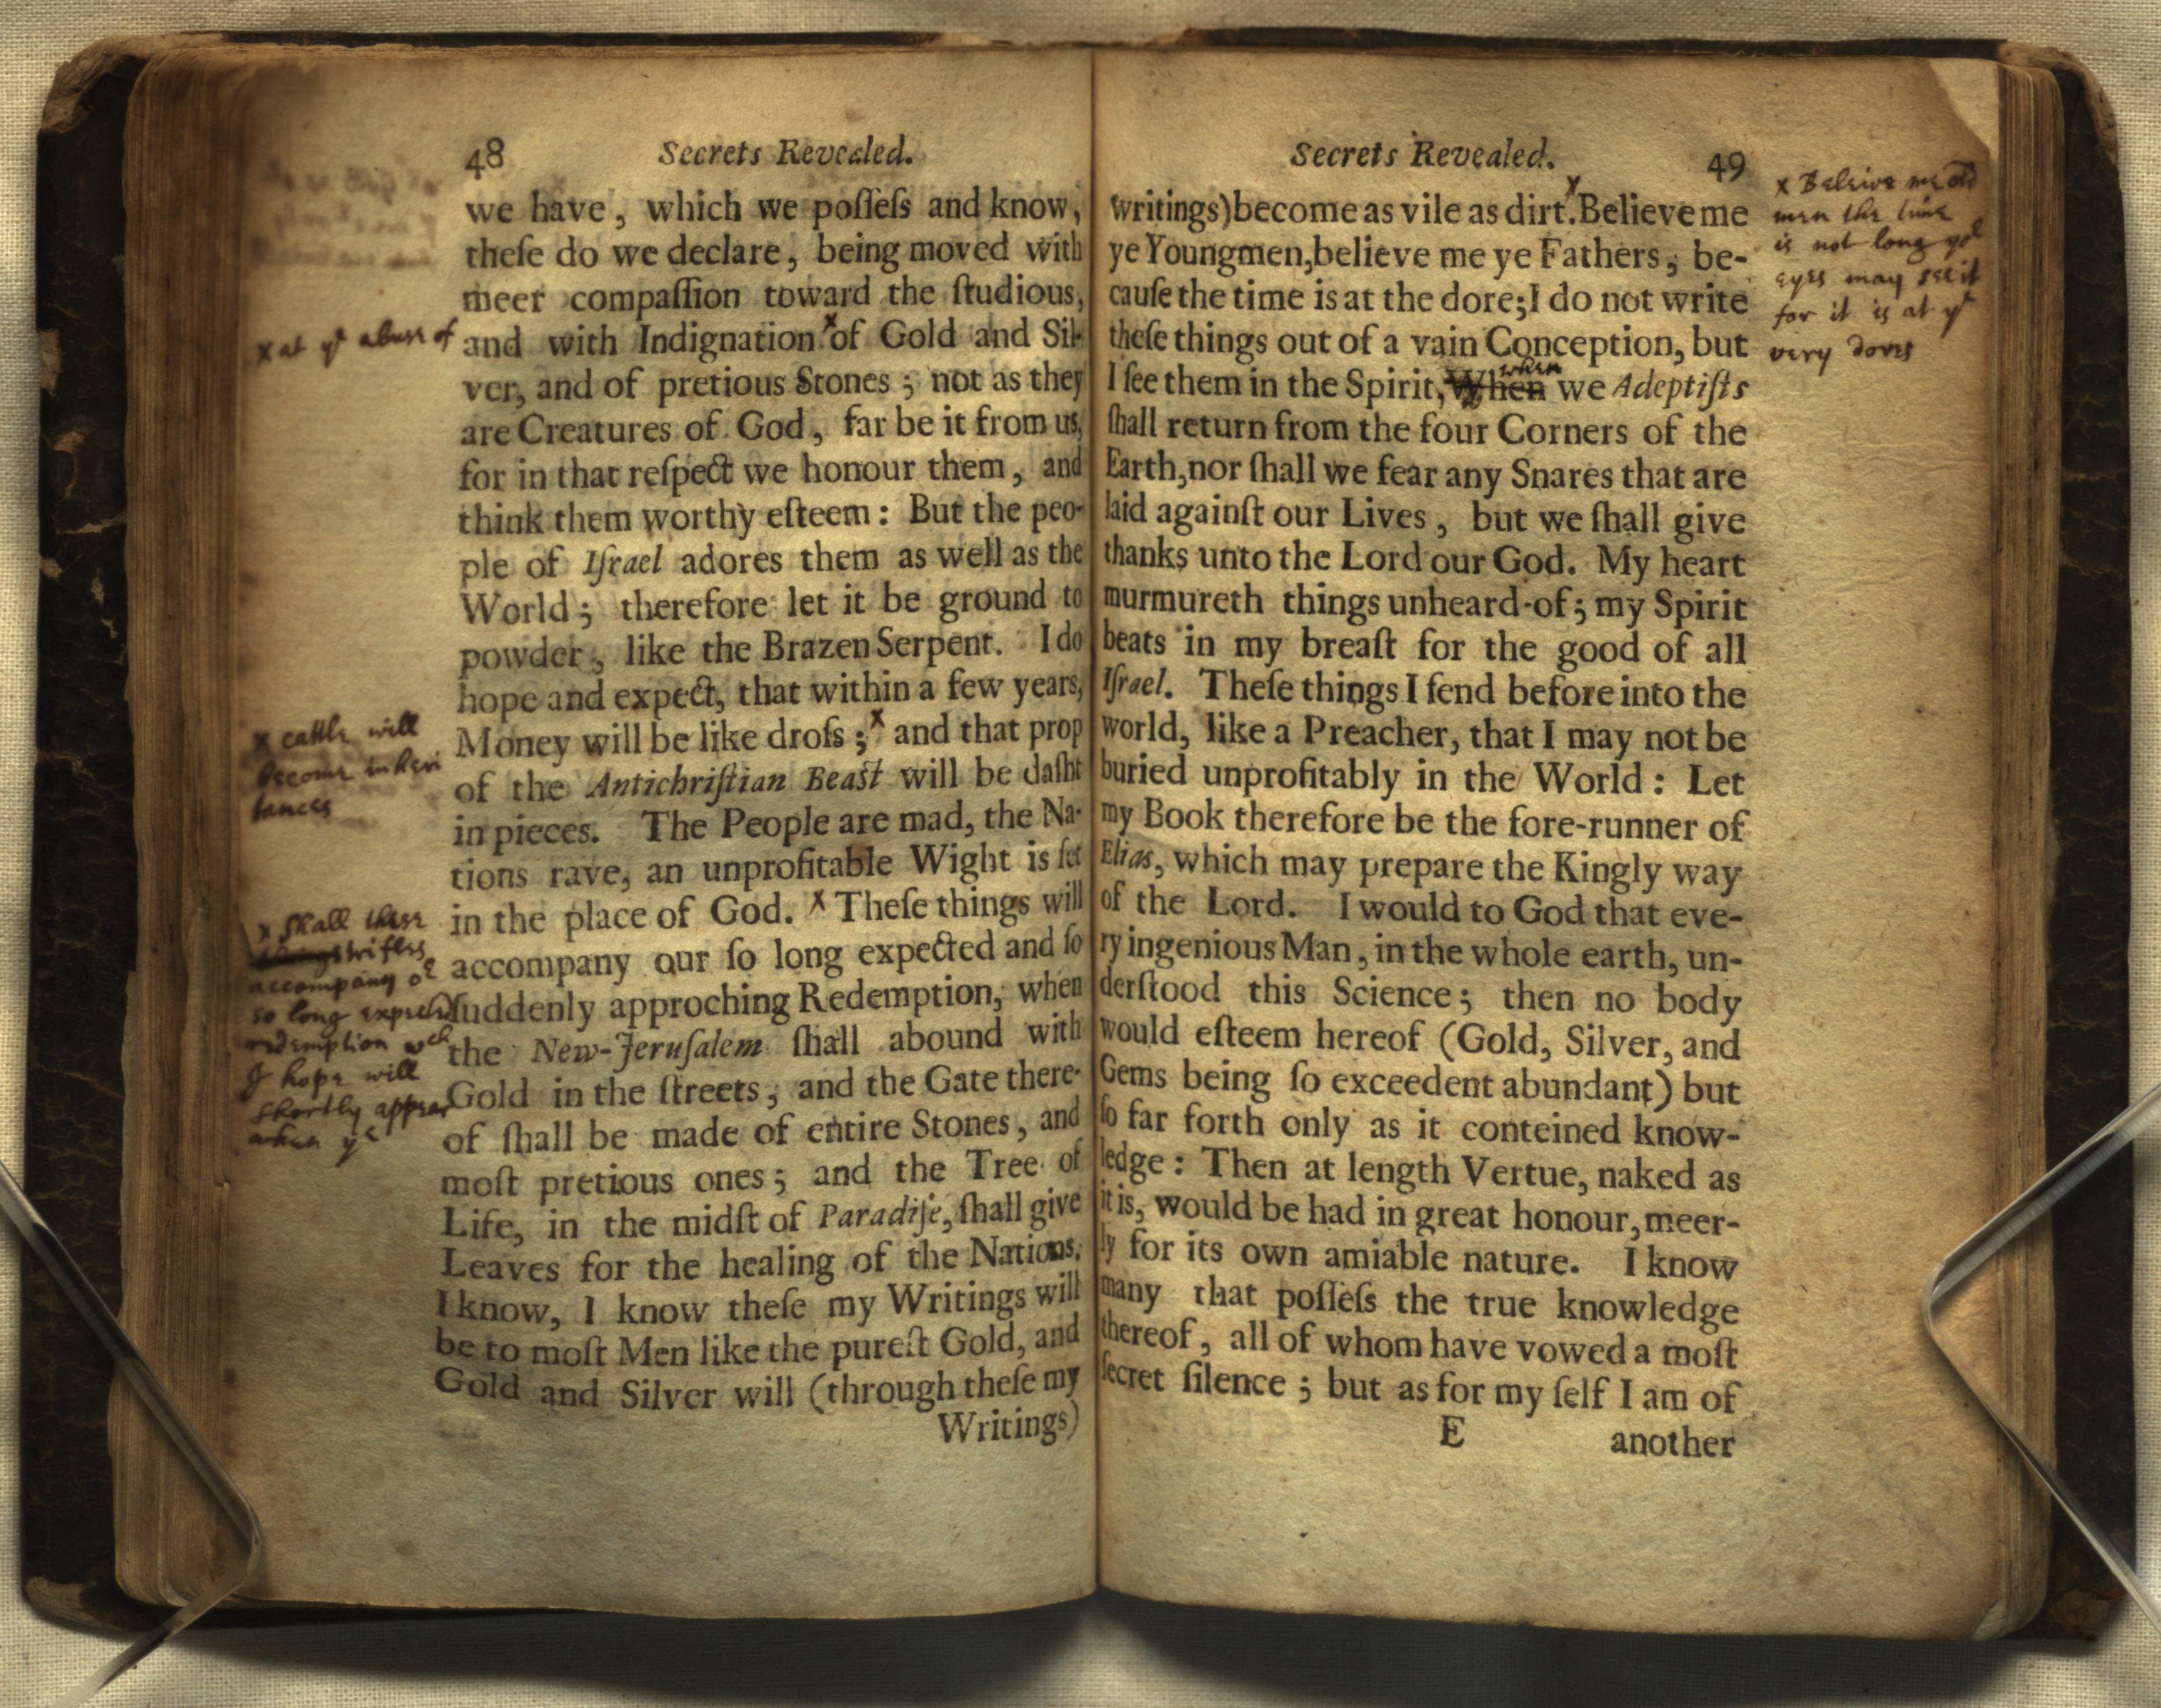 48 Secrets Revealed.
we have, which we poſſeſs and know,
theſe do we declare, being moved with
meer compaſſion toward the ſtudious,
x at yᵉ abuse of
and with Indignation x of Gold and Sil-
ver, and of pretious Stones; not as they
are Creatures of God, far be it from us,
for in that reſpect we honour them, and
think them worthy eſteem: But the peo-
ple of Iſrael adores them as well as the
World; therefore let it be ground to
powder, like the Brazen Serpent. I do
hope and expect, that within a few years,
x cattle will
become inheri
tances
Money will be like droſs; x and that prop
of the Antichriſtian Beast will be daſht
in pieces. The People are mad, the Na-
tions rave, an unprofitable Wight is ſet
x Shall these
things trifles
accompany oʳ
so long expected
redemption wᶜʰ
I hope will
shortly appear
when yᵉ
in the place of God. x Theſe things will
accompany our ſo long expected and ſo
ſuddenly approching Redemption, when
the New-Jeruſalem ſhall abound with
Gold in the ſtreets, and the Gate there-
of ſhall be made of entire Stones, and
moſt pretious ones; and the Tree of
Life, in the midſt of Paradiſe, ſhall give
Leaves for the healing of the Nations.
I know, I know theſe my Writings will
be to moſt Men like the pureſt Gold, and
Gold and Silver will (through theſe my
Writings)
Secrets Revealed. 49
writings) become as vile as dirt. x Believe me
ye Youngmen, believe me ye Fathers, be-
cauſe the time is at the dore; I do not write
theſe things out of a vain Conception, but
x Beleive me old
men the time
is not long yoʳ
eyes may see it
for it is at yᵉ
very dores
when
I ſee them in the Spirit, When we Adeptiſts
ſhall return from the four Corners of the
Earth, nor ſhall we fear any Snares that are
laid againſt our Lives, but we ſhall give
thanks unto the Lord our God. My heart
murmureth things unheard-of; my Spirit
beats in my breaſt for the good of all
Iſrael. Theſe things I ſend before into the
world, like a Preacher, that I may not be
buried unprofitably in the World: Let
my Book therefore be the fore-runner of
Elias, which may prepare the Kingly way
of the Lord. I would to God that eve-
ry ingenious Man, in the whole earth, un-
derſtood this Science; then no body
would eſteem hereof (Gold, Silver, and
Gems being ſo exceedent abundant) but
ſo far forth only as it conteined know-
ledge: Then at length Vertue, naked as
it is, would be had in great honour, meer-
ly for its own amiable nature. I know
many that poſſeſs the true knowledge
thereof, all of whom have vowed a moſt
ſecret ſilence; but as for my ſelf I am of
E another